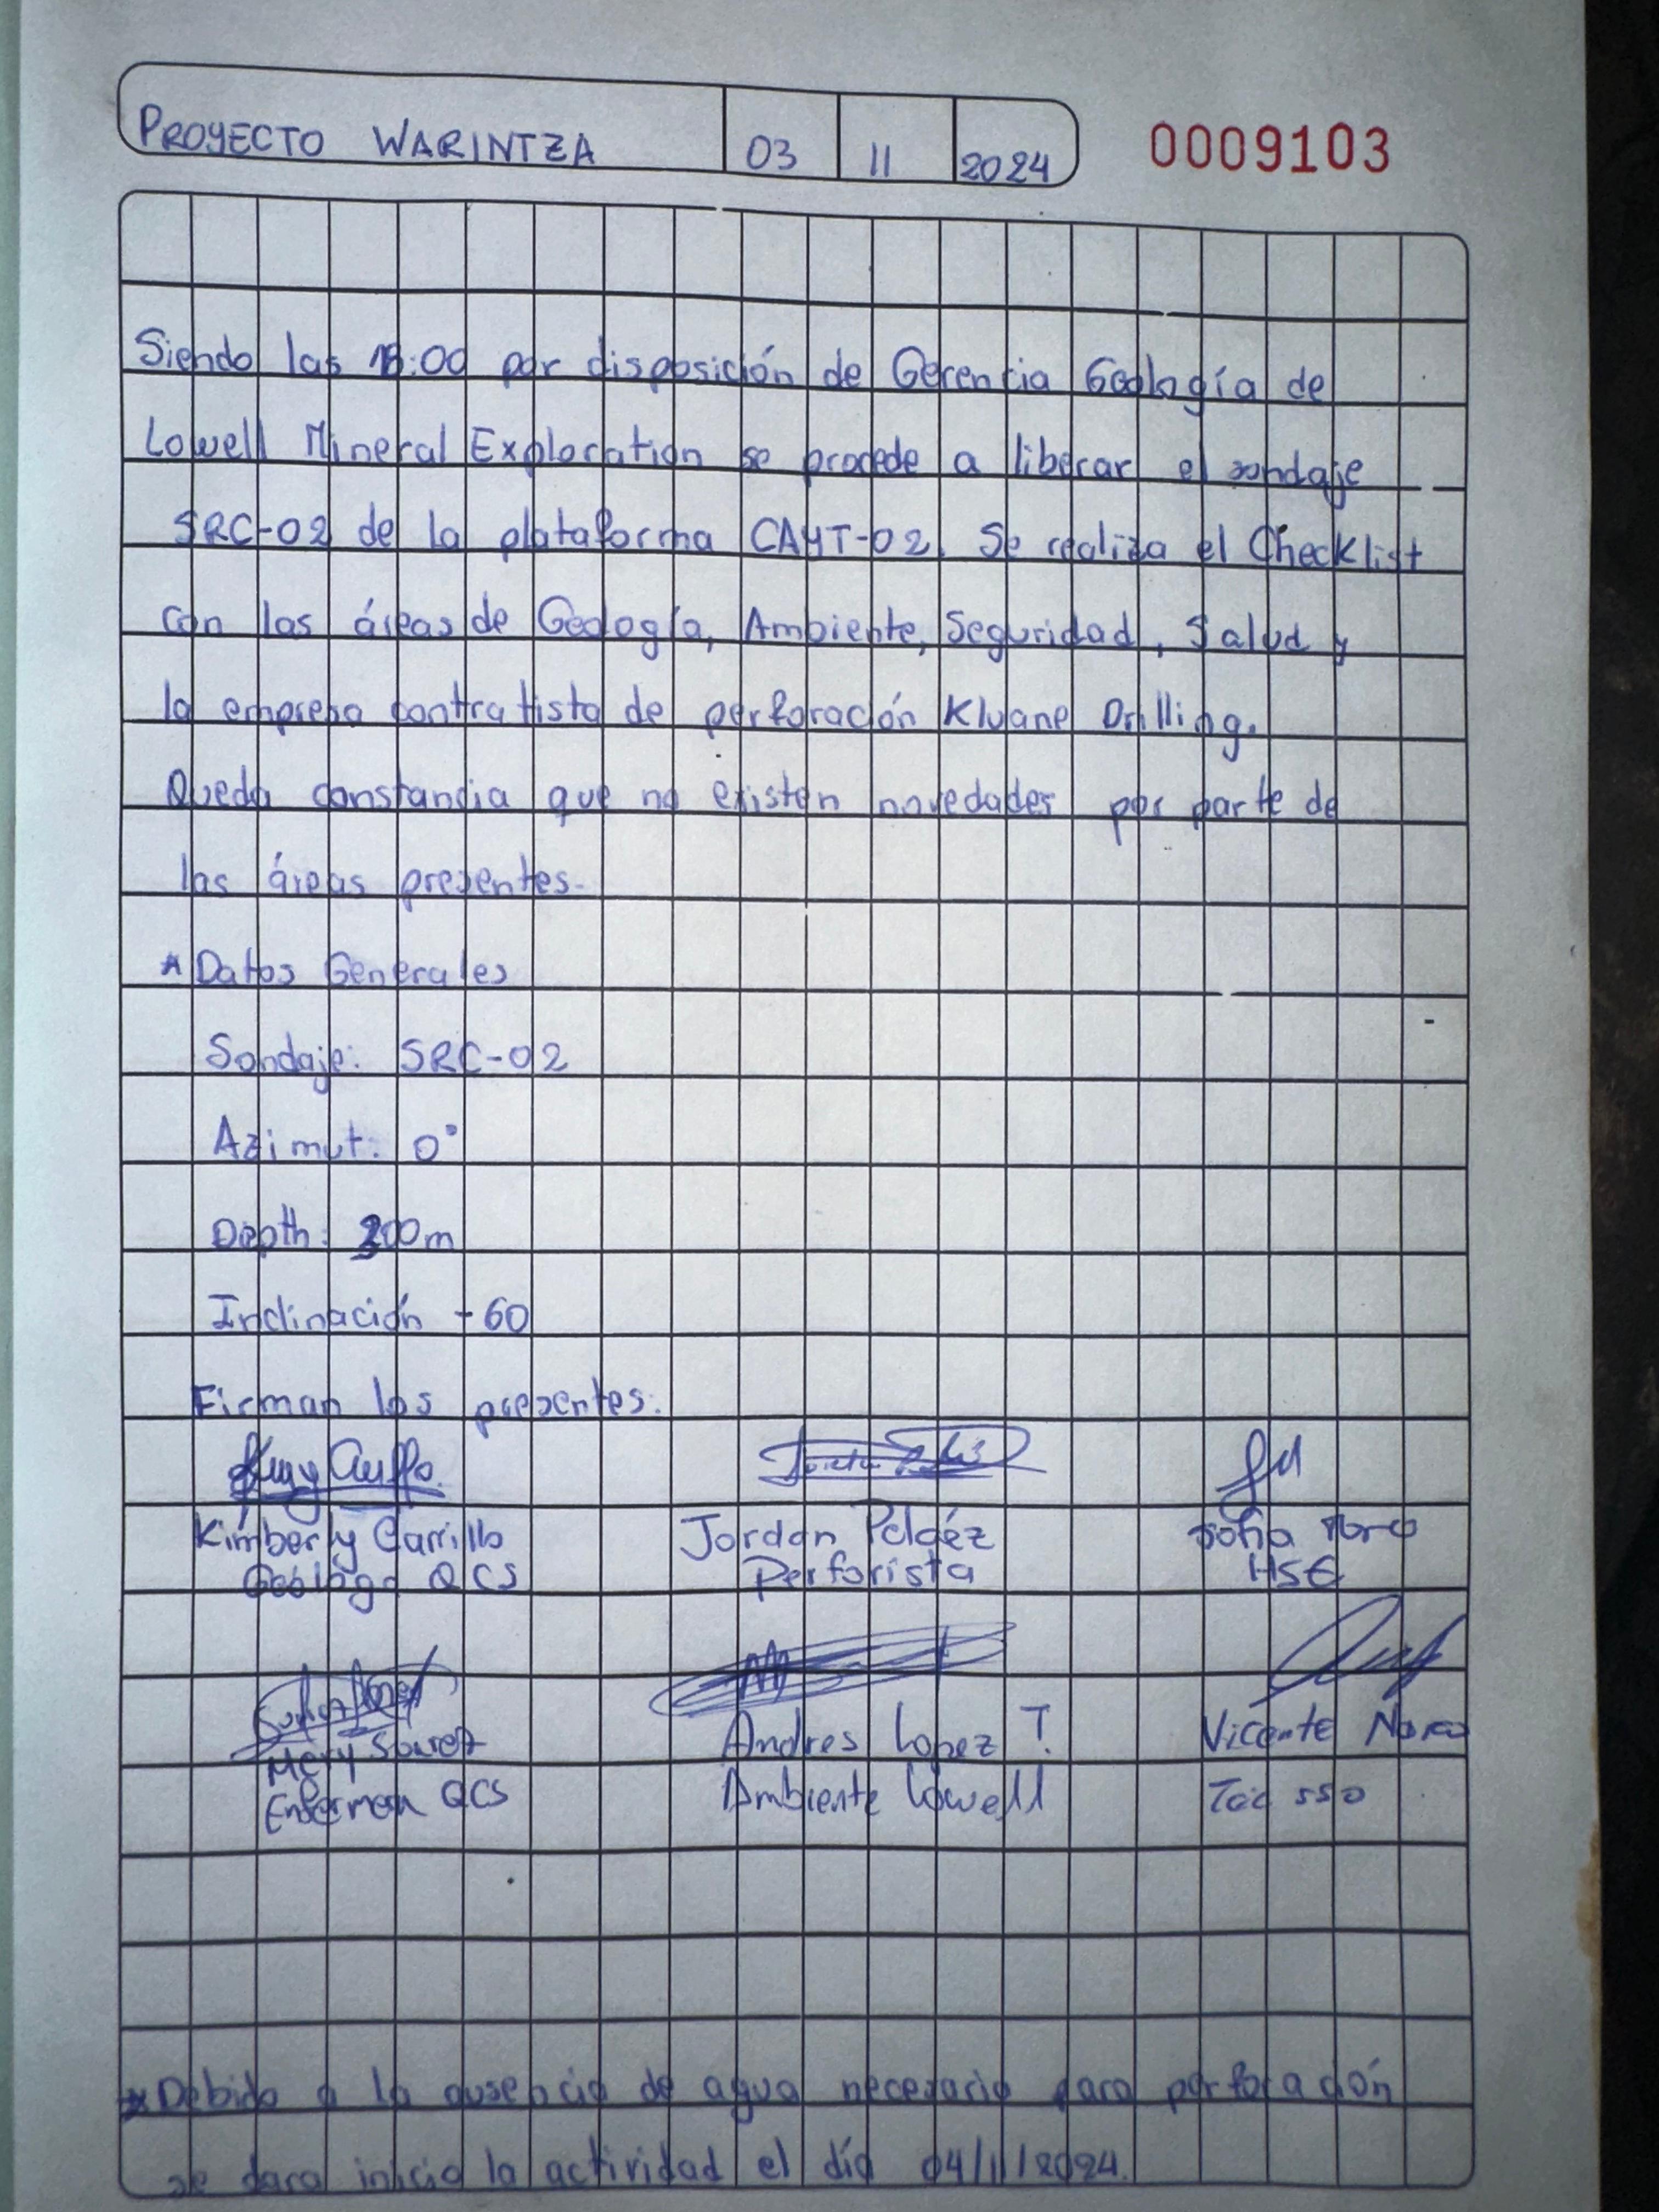 PROYECTO WARINTZA 03 11 2024 0009103
Siendo las :00 por disposición de Gerencia Geología de
Lowell Mineral Exploration se procede a liberar el sondaje
SRC-02 de la plataforma CAYT-02. Se realiza el Checklist
con las áreas de Geología, Ambiente, Seguridad, Salud y
la empresa contratista de perforación Kluane Drilling.
Queda constancia que no existen novedades por parte de
las áreas presentes.
* Datos Generales
Sondaje: SRC-02
Azimut: 0°
Depth: 200m
Inclinación -60
Firman los presentes:
Kimberly Carrillo Jordan Peláéz Sofia Toro
Geólogo QCS Perforista HSE
Mery Suarez Andres Lopez T. Vicente
Enfermera QCS Ambiente Lowell Téc SSO
* Debido a la ausencia de agua necesaria para perforación
se dara inicio la actividad el día 04/11/2024.